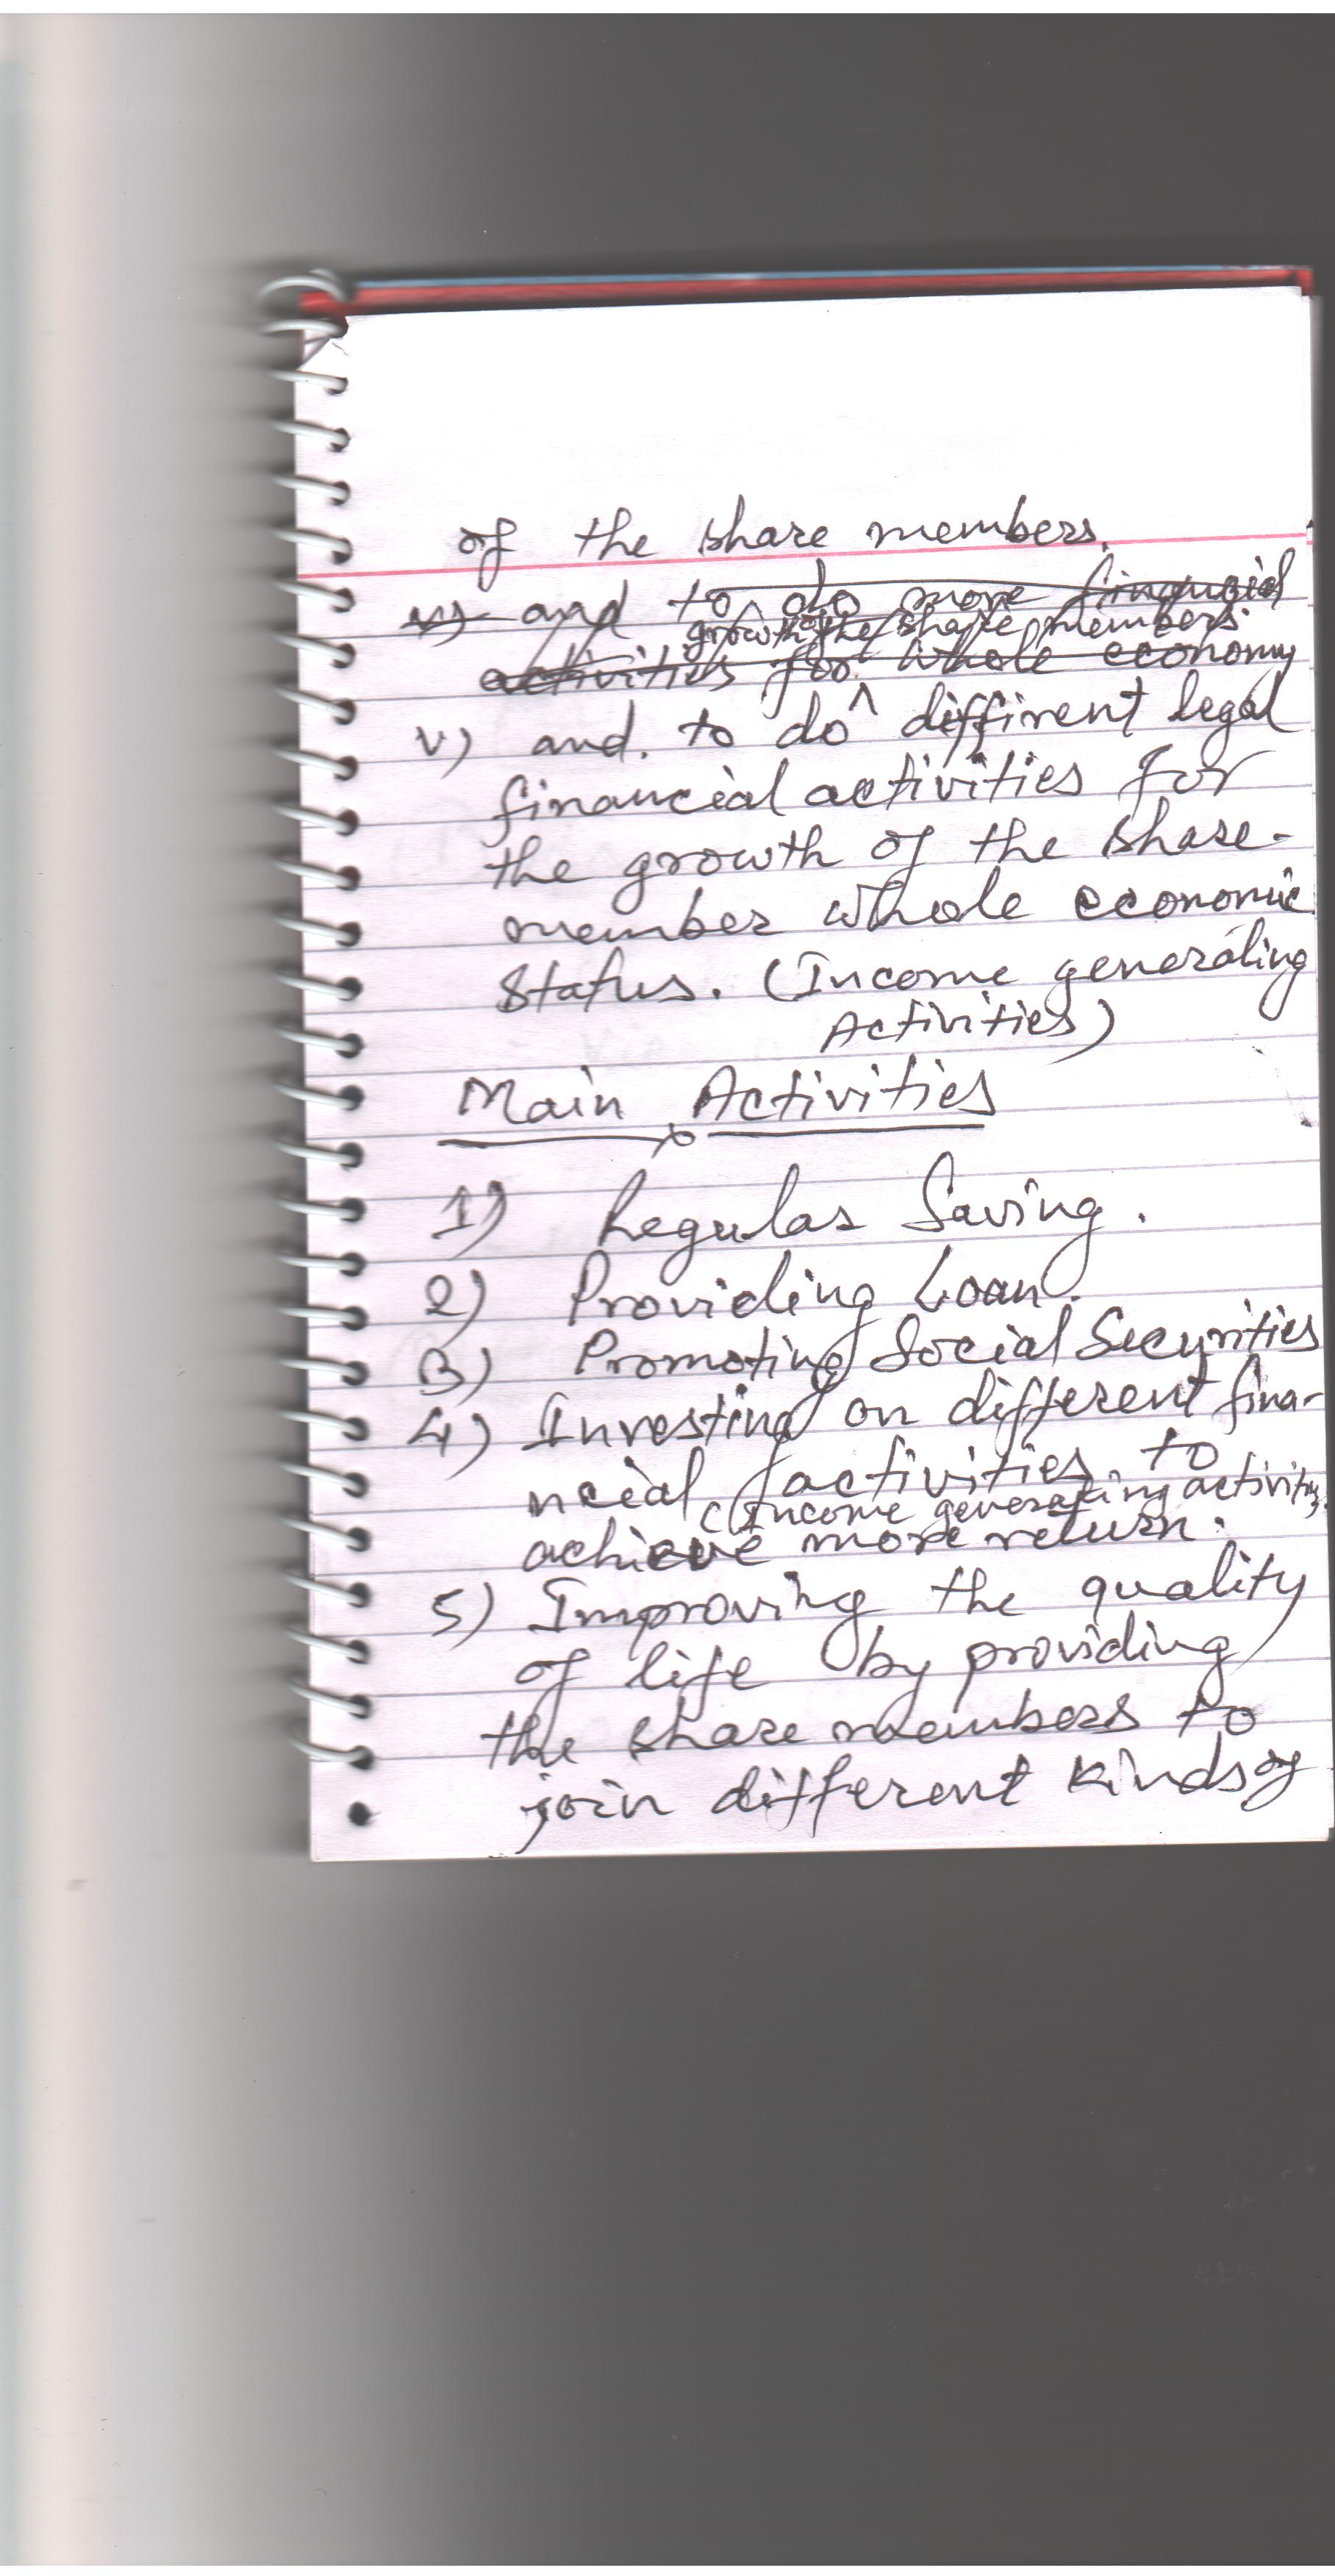 of the share members.
v) and to do more financial
growth of the share members
activities for whole economy
v) and. to do ^ diffirent legal
financial activities for
the growth of the share-
member whole economic
Status. (Income generating
Activities)
Main Activities
1) Regular Saving.
2) Providing Loan.
3) Promoting Social Securities
4) Investing on different fina-
ncial activities to
(Income generating activities
achieve more return.
5) Improving the quality
of life by providing
the share members to
join different kinds of